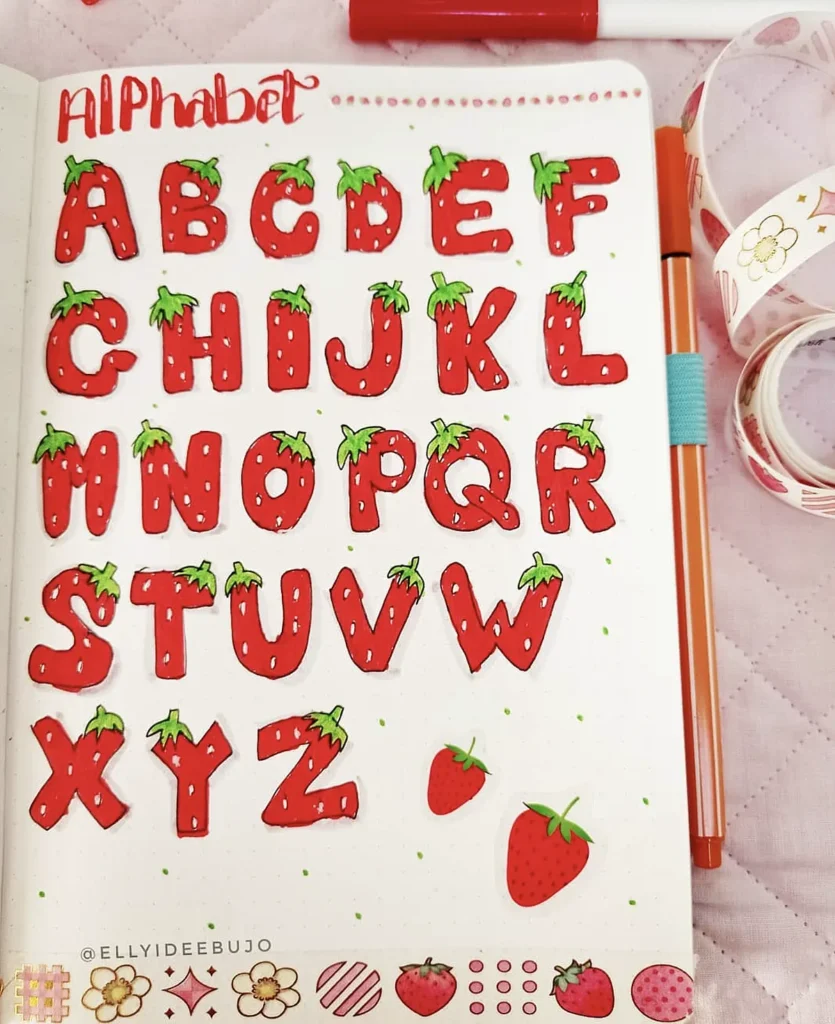 AlPhabet
A B C D E F
G H I J K L
M N O P Q R
S T U V W
X Y Z
@ELLYIDEEBUJO